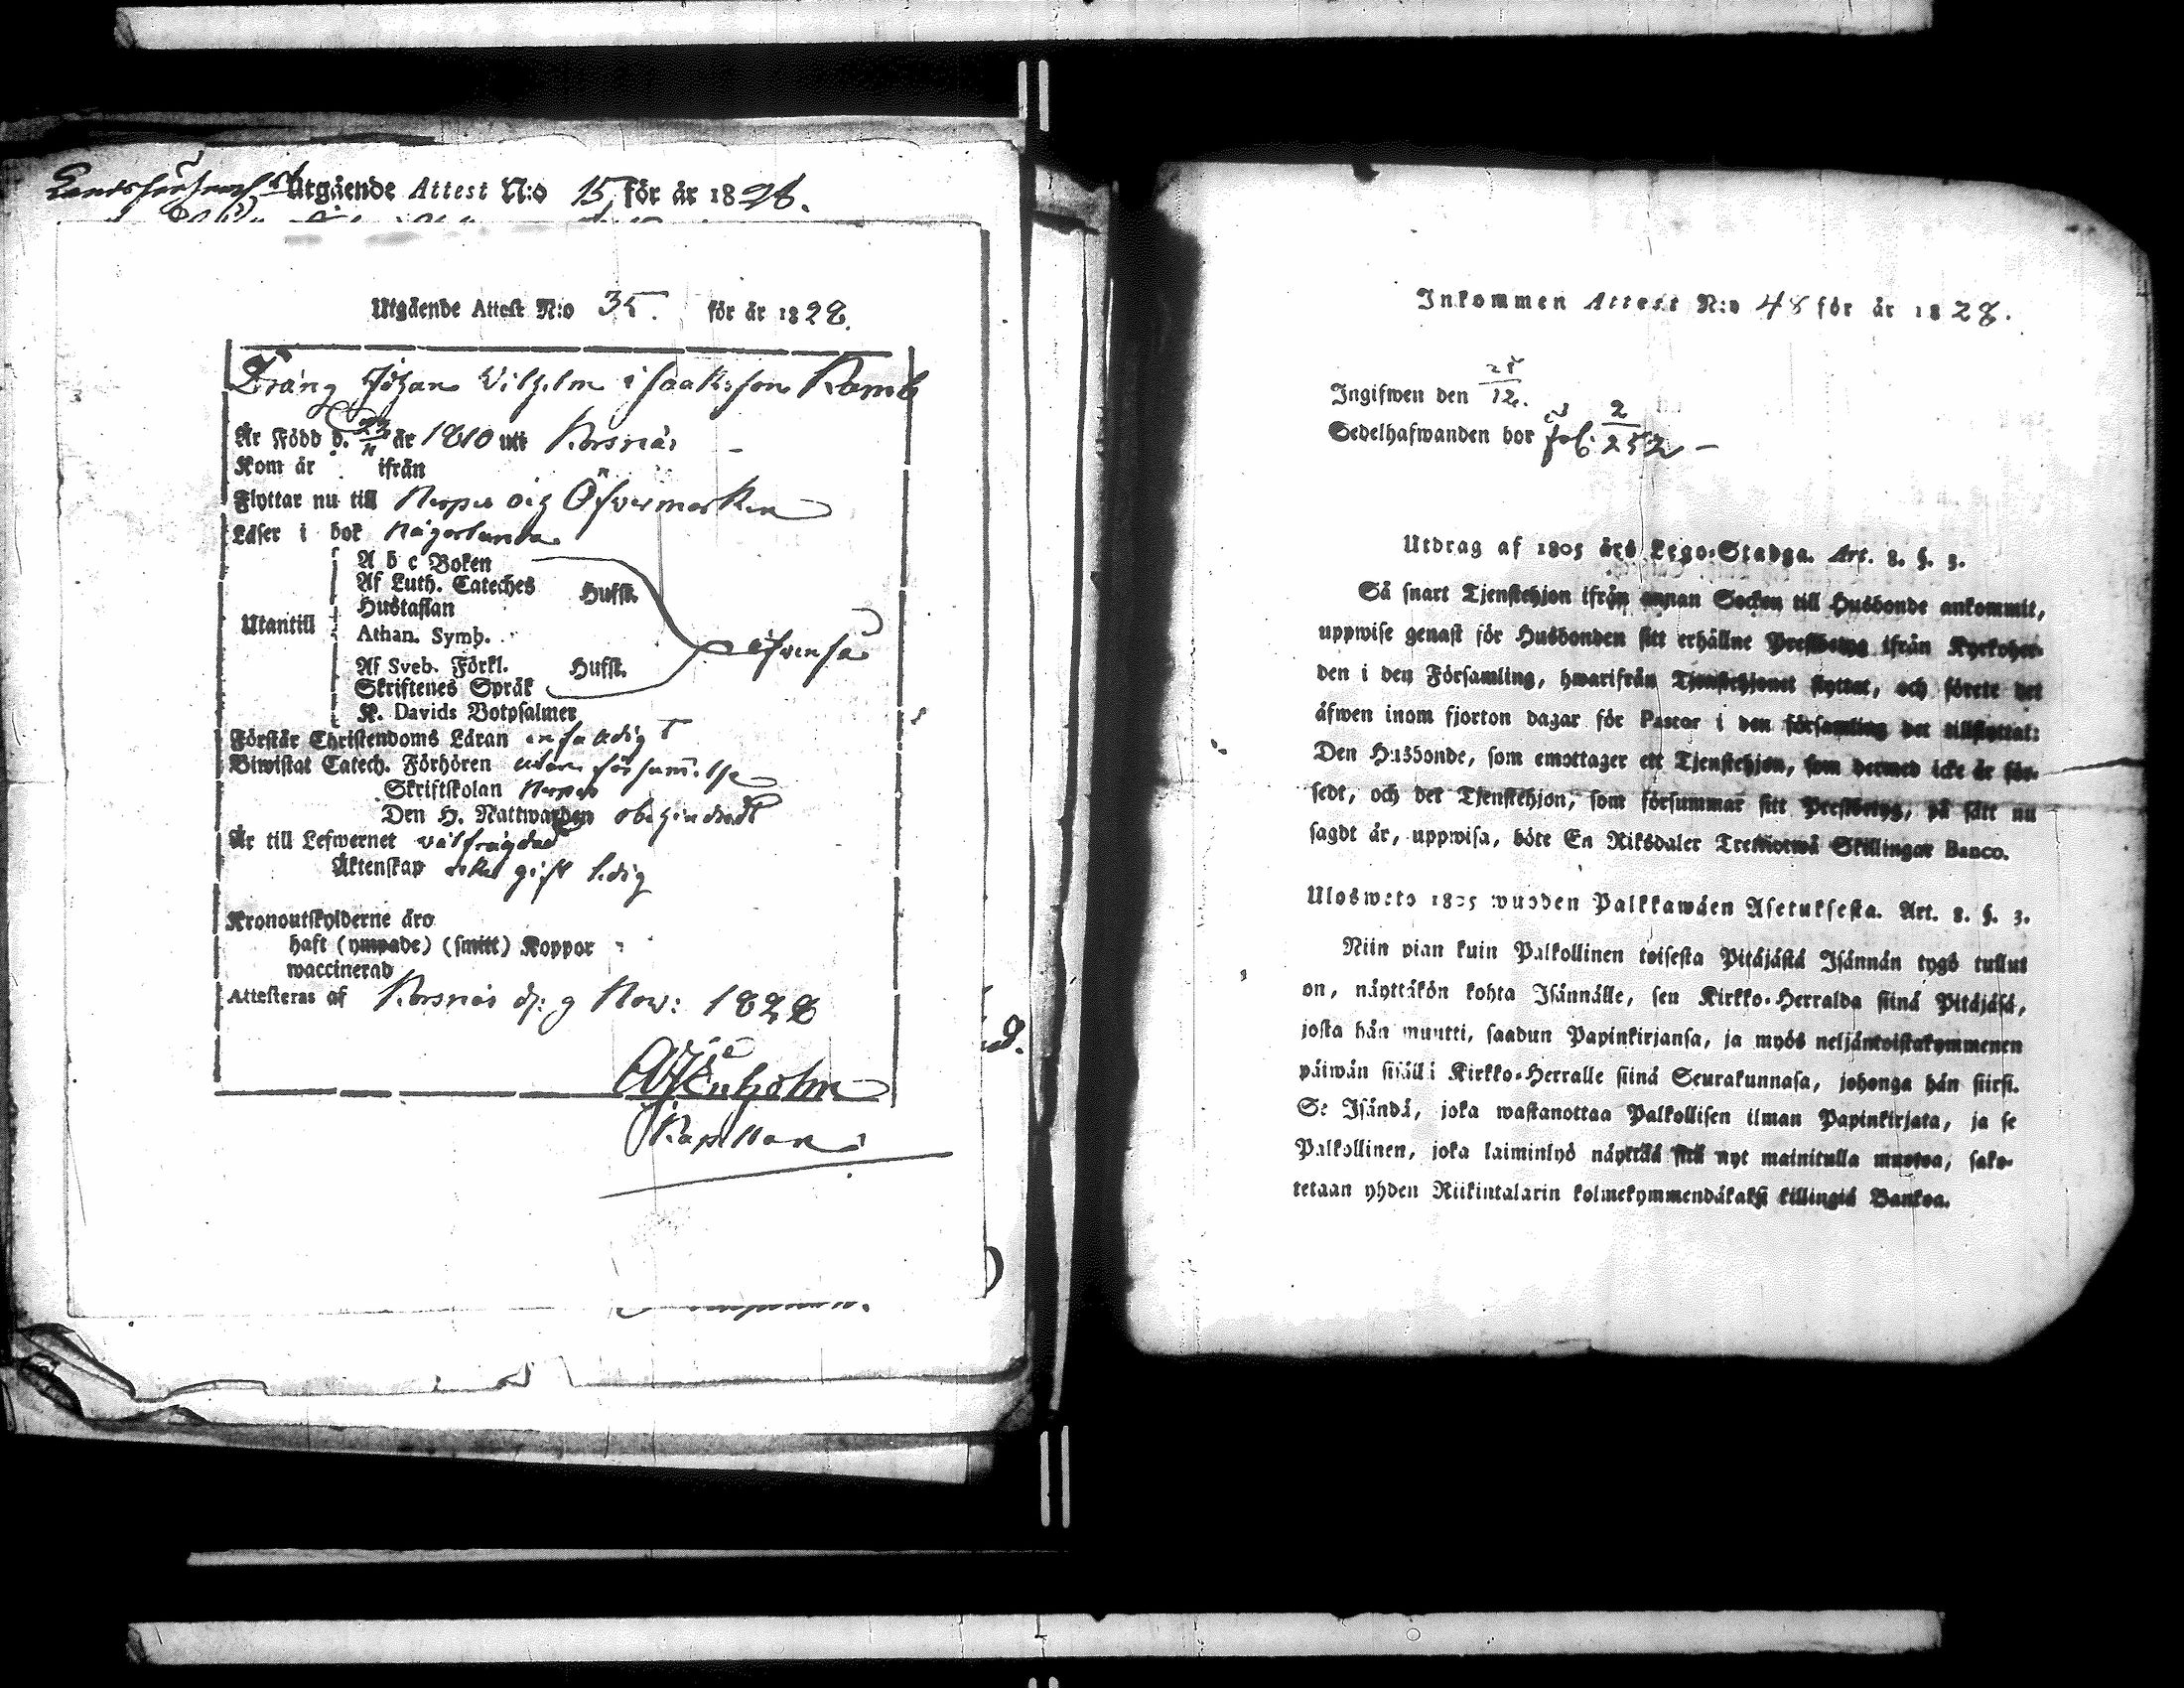 Utgående Attest N:o 15 för år 1828.
Utgående Attest N:o 35. för år 1828.
Dräng Johan Vilhelm Isaaksson Ramb
Är Född d. 23/11 år 1810 uti Korsnäs
Kom år ifrån
Flyttar nu till Nerpes och Öfvermarken
Läser i bok någorlunda
Utantill
A b c Boken
Af Luth. Cateches Hufst.
Hustaflan
Athan. Symb.
Af Sveb. Förkl. Hufst.
Skriftenes Språk
K. Davids Botpsalmer
äfvenså
Förstår Christendoms Läran enfaldigt
Biwistat Catech. Förhören utan försummelse
Skriftskolan Nerpes
Den H. Nattwarden obehindradt
Är till Lefwernet välfrägdad
Äktenskap oftast gift ledig
Kronoutskylderne äro
haft (ympade) (smitt) Koppor
waccinerad
Attesteras af Korsnäs d. 9 Nov: 1828
Kapellan
Inkommen Attest N:o 48 för år 1828.
Ingifwen den 28/12.
Sedelhafwanden bor fol. 2/252 —
Utdrag af 1805 års Lego-Stadga. Art. 8. §. 3.
Så snart Tjenstehjon ifrån annan Socken till Husbonde ankommit,
uppwise genast för Husbonden sitt erhållne Prestbetyg ifrån Kyrkoher-
den i den Församling, hwarifrån Tjenstehjonet flyttat, och förete det
äfwen inom fjorton dagar för Pastor i den församling det tillflyttat:
Den Husbonde, som emottager ett Tjenstehjon, som dermed icke är för-
sedt, och det Tjenstehjon, som försummar sitt Prestbetyg, på sätt nu
sagdt är, uppwisa, böte En Riksdaler Trettiotwå Skillingar Banco.
Ulosweto 1805 wuoden Palkkawäen Asetuksesta. Art. 8. §. 3.
Niin pian kuin Palkollinen toisesta Pitäjästä Isännän tygö tullut
on, näyttäkön kohta Isännälle, sen Kirkko-Herralda siinä Pitäjäsä,
josta hän muutti, saadun Papinkirjansa, ja myös neljäntoistakymmenen
päiwän sisällä Kirkko-Herralle siinä Seurakunnasa, johonga hän siirsi.
Se Isändä, joka wastanottaa Palkollisen ilman Papinkirjata, ja se
Palkollinen, joka laiminlyö näyttää sitä nyt mainitulla muotoa, sako-
tetaan yhden Riikintalarin kolmekymmendäkaksi killingiä Bankoa.